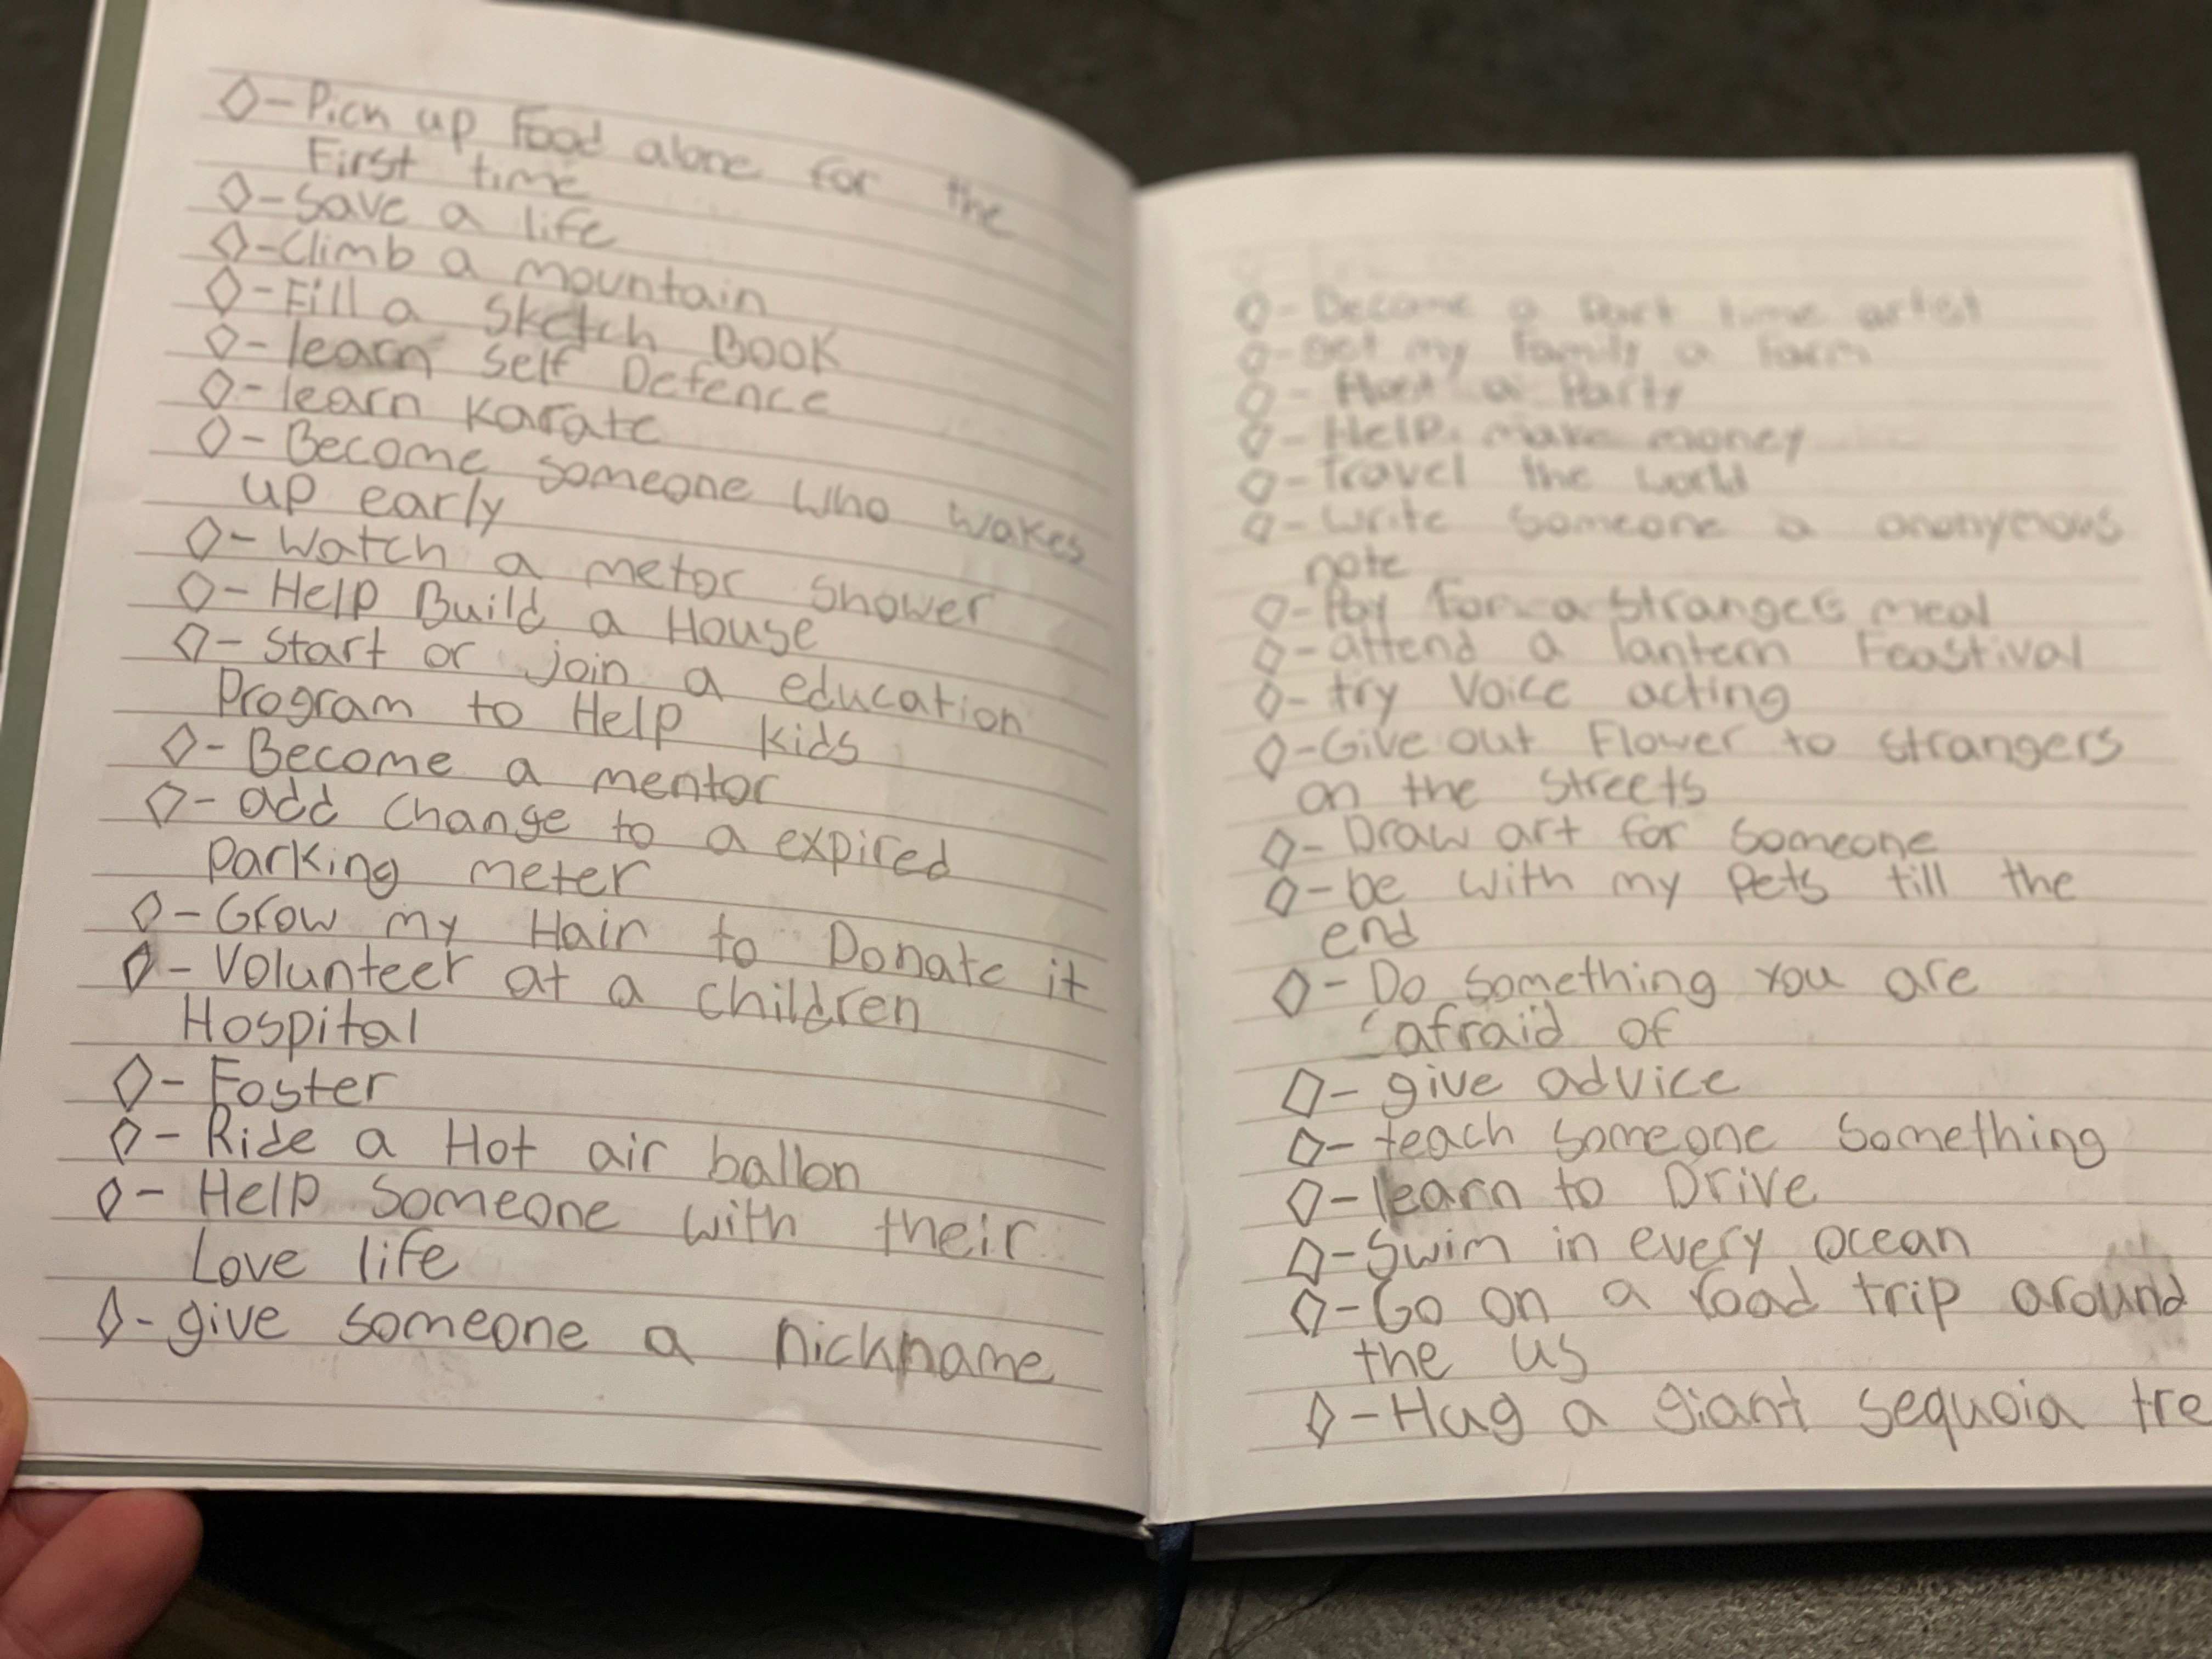 ◊-Pick up Food alone for the
First time
◊-Save a life
◊-Climb a mountain
◊-Fill a Sketch BOOK
◊-learn Self Defence
◊-learn Karate
◊-Become someone who wakes
up early
◊-Watch a metor Shower
◊-Help Build a House
◊-Start or join a education
Program to Help kids
◊-Become a mentor
◊-add change to a expired
Parking meter
◊-Grow my Hair to Donate it
◊-Volunteer at a children
Hospital
◊-Foster
◊-Ride a Hot air ballon
◊-Help someone with their
Love life
◊-give someone a nickname
◊-Become a Part time artist
◊-Get my Family a Farm
◊- a Party
◊-Help make money
◊-Travel the world
◊-Write Someone a anonymous
note
◊-Pay for a Strangers meal
◊-attend a lantern Feastival
◊-try Voice acting
◊-Give out Flower to Strangers
on the Streets
◊-Draw art for Someone
◊-be with my Pets till the
end
◊-Do Something You are
afraid of
◊-give advice
◊-teach someone Something
◊-learn to Drive
◊-Swim in every ocean
◊-Go on a road trip around
the us
◊-Hug a giant sequoia tre